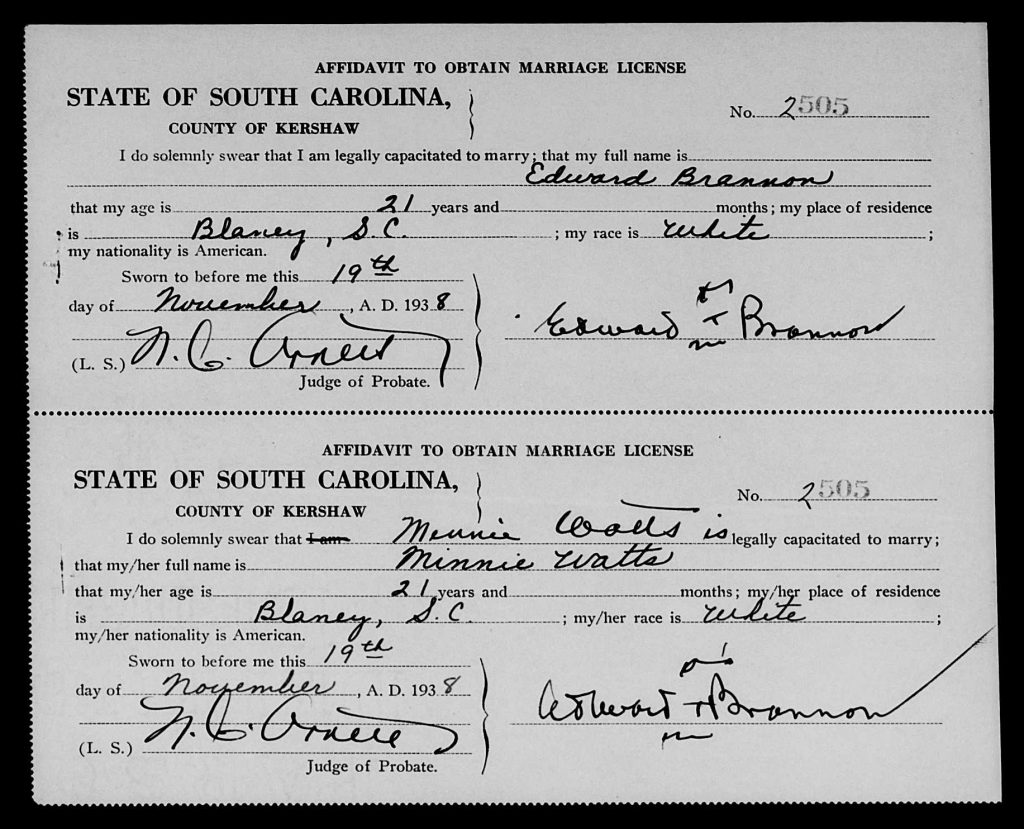 AFFIDAVIT TO OBTAIN MARRIAGE LICENSE
STATE OF SOUTH CAROLINA,
No. 2505
COUNTY OF KERSHAW
I do solemnly swear that I am legally capacitated to marry; that my full name is
Edward Brannon
that my age is 21 years and months; my place of residence
is Blaney, S.C. ; my race is White ;
my nationality is American.
Sworn to before me this 19th
day of November, A. D. 1938
Edward Brannon
(L. S.) N. C. Arnett
Judge of Probate.
AFFIDAVIT TO OBTAIN MARRIAGE LICENSE
STATE OF SOUTH CAROLINA,
No. 2505
COUNTY OF KERSHAW
I do solemnly swear that I am Minnie Watts is legally capacitated to marry;
that my/her full name is Minnie Watts
that my/her age is 21 years and months; my/her place of residence
is Blaney, S.C. ; my/her race is White ;
my/her nationality is American.
Sworn to before me this 19th
day of November, A. D. 1938
Edward Brannon
(L. S.) N. C. Arnett
Judge of Probate.